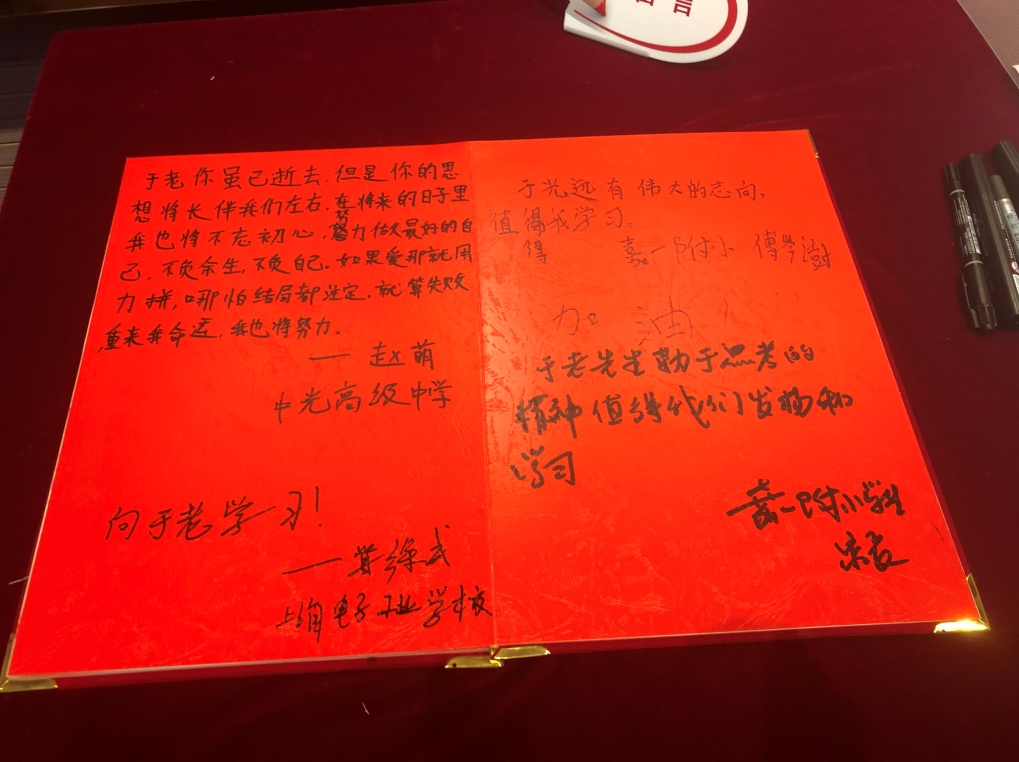 言
于老你虽已逝去,但是你的思
想将长伴我们左右,在将来的日子里
我也将不忘初心,努力做最好的自
己,不负余生,不负自己。如果爱那就用
力拼,哪怕结局都注定,就算失败
重来弄命运,我也将努力。
——赵萌
中光高级中学
向于老学习!
上海电子工业学校
于光远有伟大的志向,
值得我学习。
得 嘉一附小
加油!
于老先生勤于思考的
精神值得我们发扬和
学习
嘉一附小学生